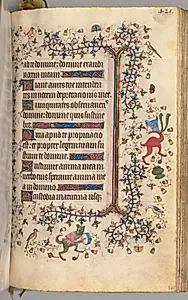 ad te domine: domine exaudi
vocem meam
Fiant aures tue intenden
in vocem deprecationis mee
Si iniquitates observaveris
domine: domine quis sustine
Quia apud te propitiatio
est: et propter legem tuam sus
tinui te domine.
Sustinuit anima mea in
verbo eius: speravit anima me
a in domino
A custodia matutina usq